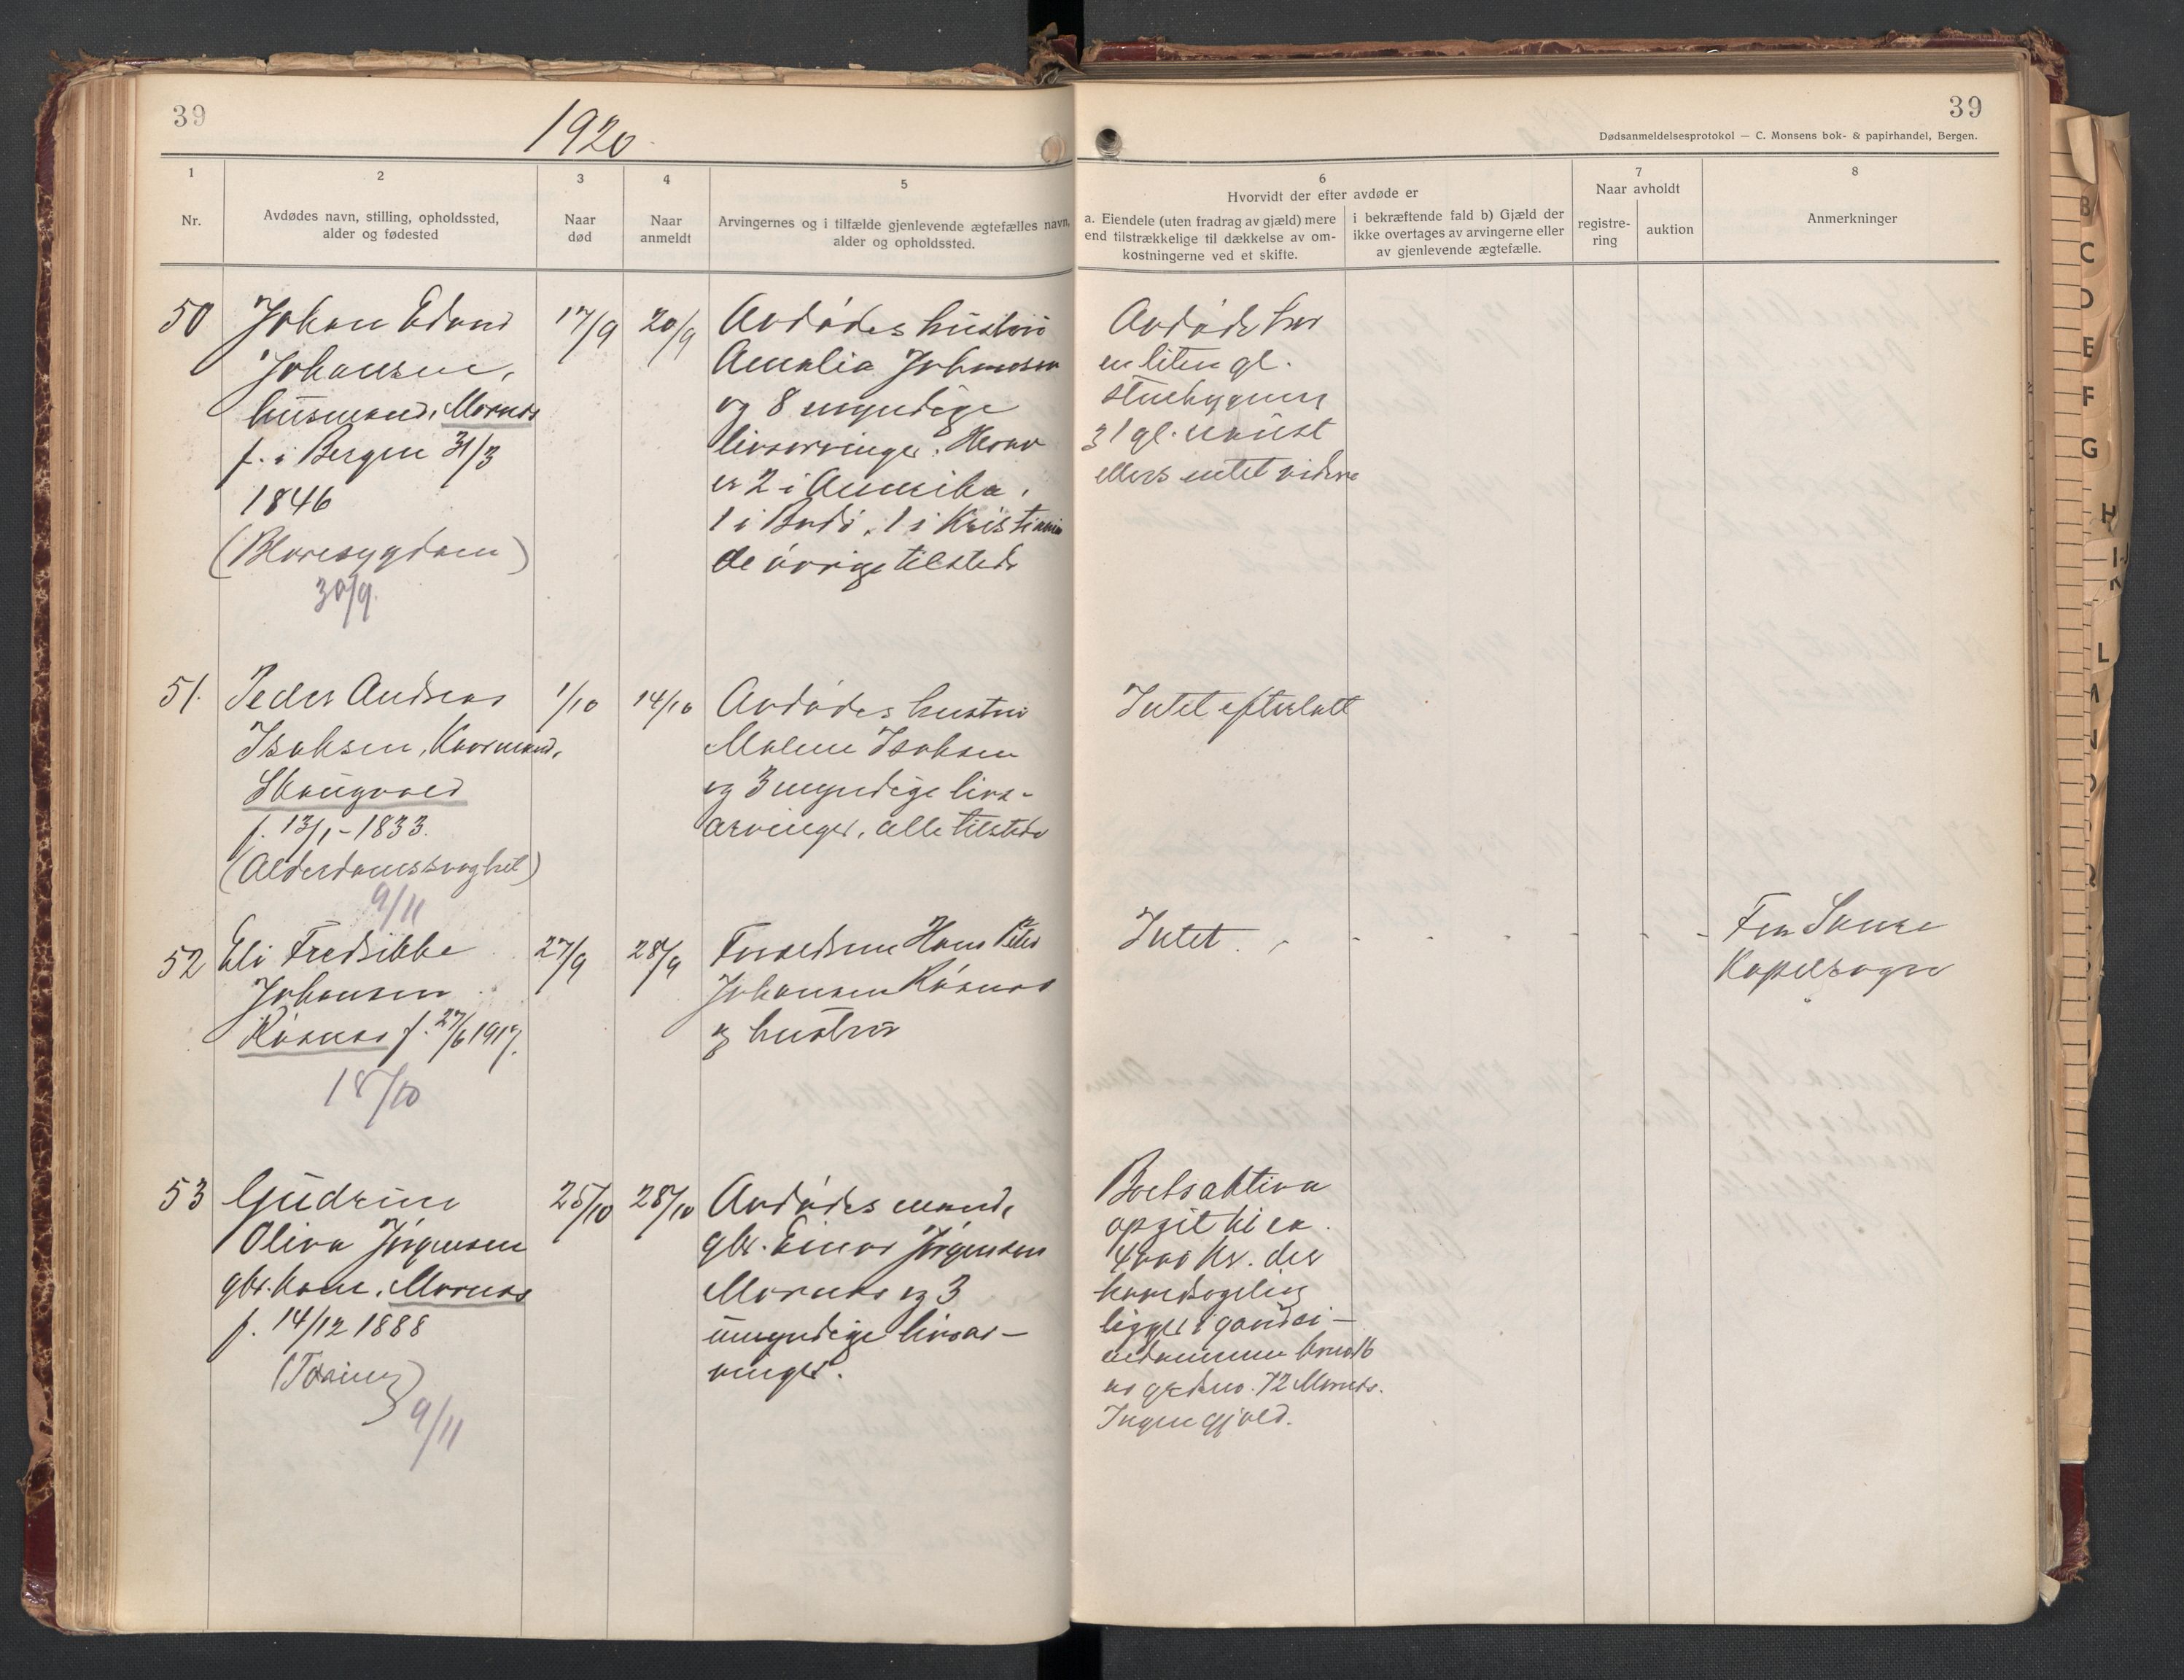 39
1920
39
Dødsanmeldelsesprotokol — C. Monsens bok- & papirhandel, Bergen.
1
2
3
4
5
6
7
8
Nr.
Avdødes navn, stilling, opholdssted,
alder og fødested
Naar
død
Naar
anmeldt
Arvingernes og i tilfælde gjenlevende ægtefælles navn,
alder og opholdssted.
Hvorvidt der efter avdøde er
a. Eiendele (uten fradrag av gjæld) mere
end tilstrækkelige til dækkelse av om-
kostningerne ved et skifte.
i bekræftende fald b) Gjæld der
ikke overtages av arvingerne eller
av gjenlevende ægtefælle.
Naar avholdt
registre-
ring
auktion
Anmerkninger
50
Johan Edvard
Johansen,
husmand, Mornes
f. i Bergen 31/3
1846
(Blæresygdom)
30/9.
17/9
20/9
Avdødes hustru
Amalia Johansen
og 8 myndige
livsarvinger. Herav
er 2 i Amerika,
1 i Bodø, 1 i Kristiania
de øvrige tilstede
Avdøde har
en liten gl.
stuebygning
og 1 gl. naust
ellers intet videre
51.
Peder Andreas
Isaksen, Kaarmand,
Skaugvold
f. 13/1-1833.
(Alderdomssvaghet)
9/11
1/10
14/10
Avdødes hustru
Malene Isaksen
og 3 myndige livs-
arvinger, alle tilstede
Intet efterlatt
52
Eli Fredrikke
Johansen
Røsnes f. 27/6 1917.
18/10
27/9
28/9
Forældrene Hans Peter
Johansen Røsnes
og hustru
Intet. - - - - - - -
Fra
Kapelsogn
53
Gudrun
Oliva Jørgensen
gbr. kone, Mornes
f. 14/12 1888
(Tæring)
9/11
25/10
28/10
Avdødes mand,
gbr. Einar Jørgensen
Mornes og 3
umyndige livsar-
vinger.
Boets aktiva
opgit til ca.
4000 kr. der
hovedsagelig
ligger i gaardei-
endommen bruk16
av gardno. 72 Mornes.
Ingen gjæld.
B
C
D
E
F
G
H
L